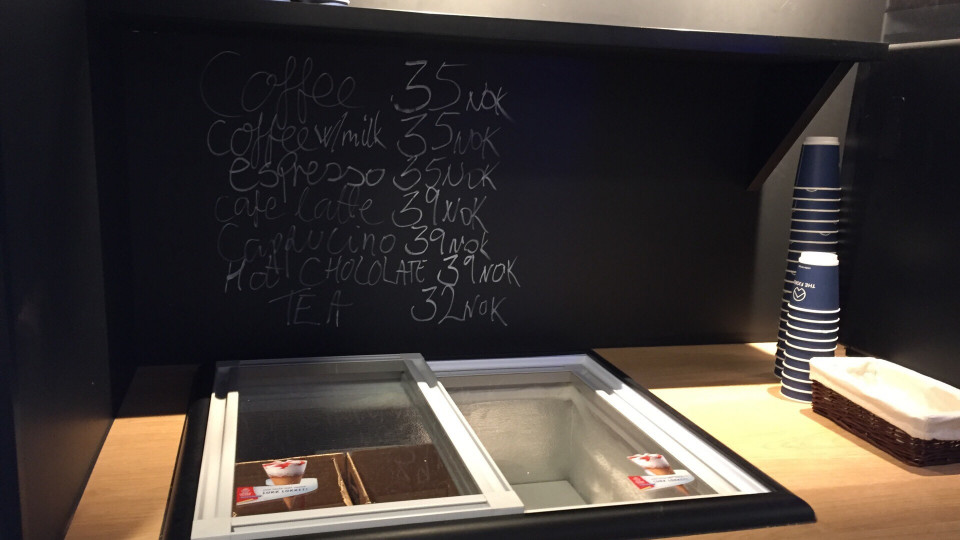 Coffee 35 NOK
Coffee w/milk 35 NOK
espresso 35 NOK
cafe latte 39 NOK
Cappucino 39 NOK
Hot CHOCOLATE 39 NOK
TEA 32 NOK